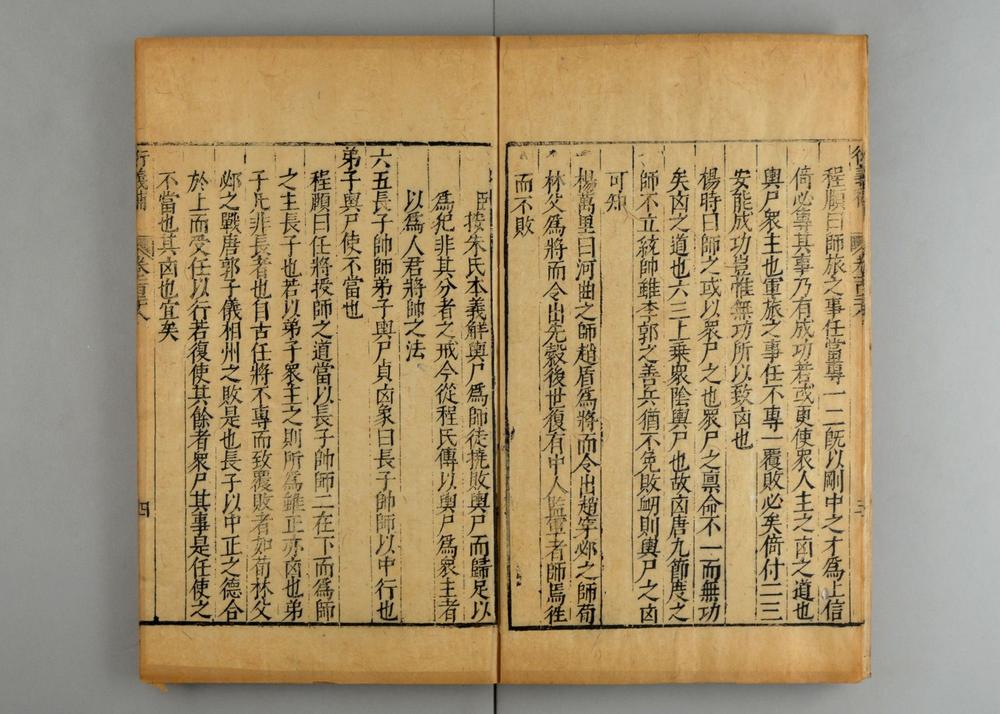 程頤曰師旅之事任當專一二既以剛中之才爲上信
倚必專其事乃有成功若或更使眾人主之凶之道也
輿尸眾主也軍旅之事任不專一覆敗必矣倚付二三
安能成功豈惟無功所以致凶也
楊時曰師之或以眾尸之也眾尸之禀命不一而無功
矣凶之道也六三上乗眾隂輿尸也故凶唐九節度之
師不立統帥雖李郭之善兵猶不免敗衂則輿尸之凶
可知
楊萬里曰河曲之師趙盾爲將而令出趙穿邲之師荀
林父爲將而令出先縠後世復有中人監軍者師焉徃
而不敗
臣按朱氏本義觧輿尸爲師徒撓敗輿尸而歸足以
爲犯非其分者之戒今從程氏傳以輿尸爲眾主者
以爲人君將帥之法
六五長子帥師弟子輿尸貞凶象曰長子帥師以中行也
弟子輿尸使不當也
程頤曰任將授師之道當以長子帥師二在下而爲師
之主長子也若以弟子眾主之則所爲雖正亦凶也弟
子凢非長者也自古任將不專而致覆敗者如荀林父
邲之戰唐郭子儀相州之敗是也長子以中正之德合
於上而受任以行若復使其餘者眾尸其事是任使之
不當也其凶也宜矣
衍義補 卷一百二十八 四